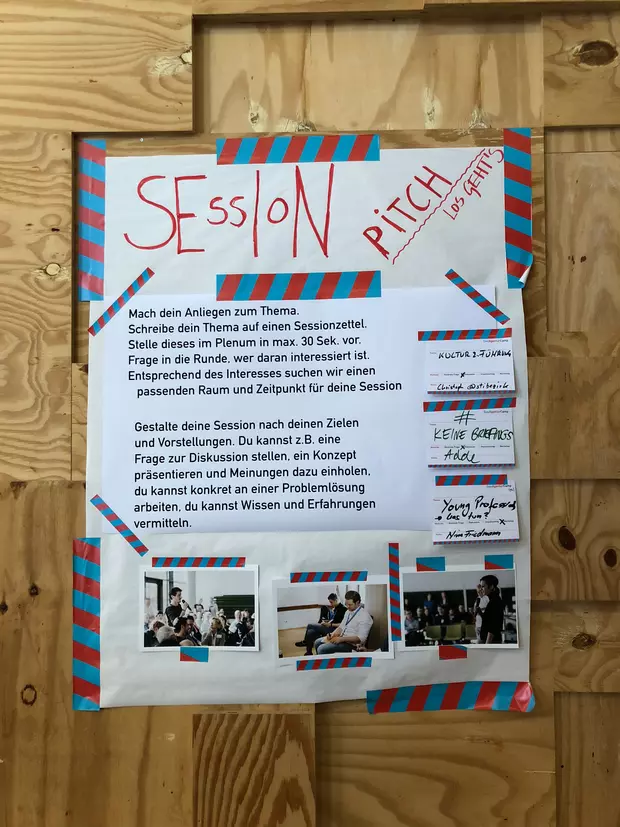 SEssION
PiTCH
LOS GEHT'S
Mach dein Anliegen zum Thema.
Schreibe dein Thema auf einen Sessionzettel.
Stelle dieses im Plenum in max. 30 Sek. vor.
Frage in die Runde, wer daran interessiert ist.
Entsprechend des Interesses suchen wir einen
passenden Raum und Zeitpunkt für deine Session
Gestalte deine Session nach deinen Zielen
und Vorstellungen. Du kannst z.B. eine
Frage zur Diskussion stellen, ein Konzept
präsentieren und Meinungen dazu einholen,
du kannst konkret an einer Problemlösung
arbeiten, du kannst Wissen und Erfahrungen
vermitteln.
KULTUR & FÜHRUNG
Christoph
#
KEINE BRIEFINGS
Adde
Young Professionals
was tun?